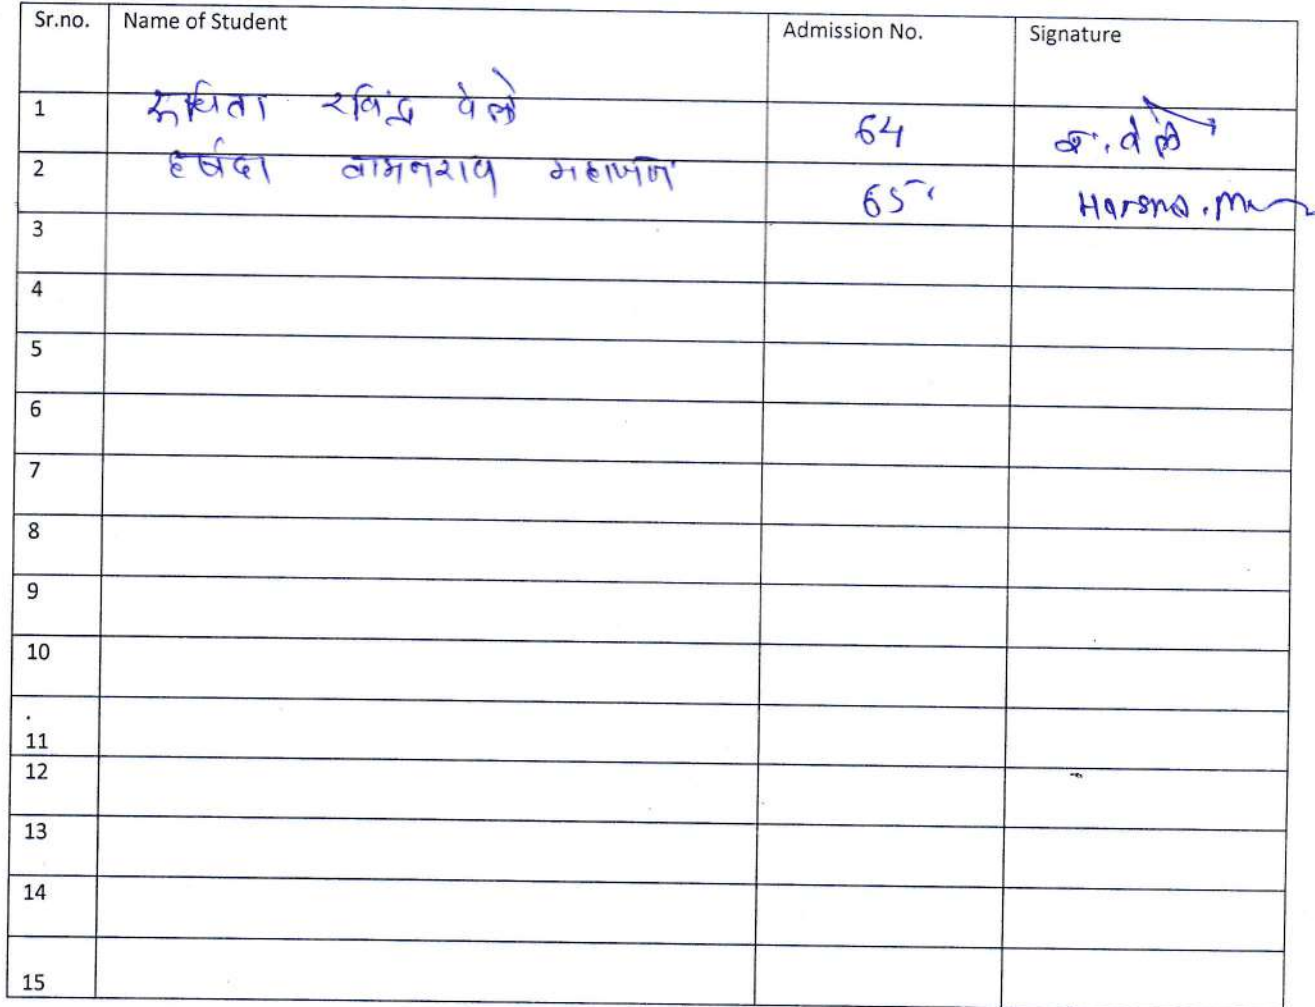 Sr.no. Name of Student Admission No. Signature
1 रविंद्र 64
2 हर्षदा वामनराव महाजन 65
3
4
5
6
7
8
9
10
11
12
13
14
15